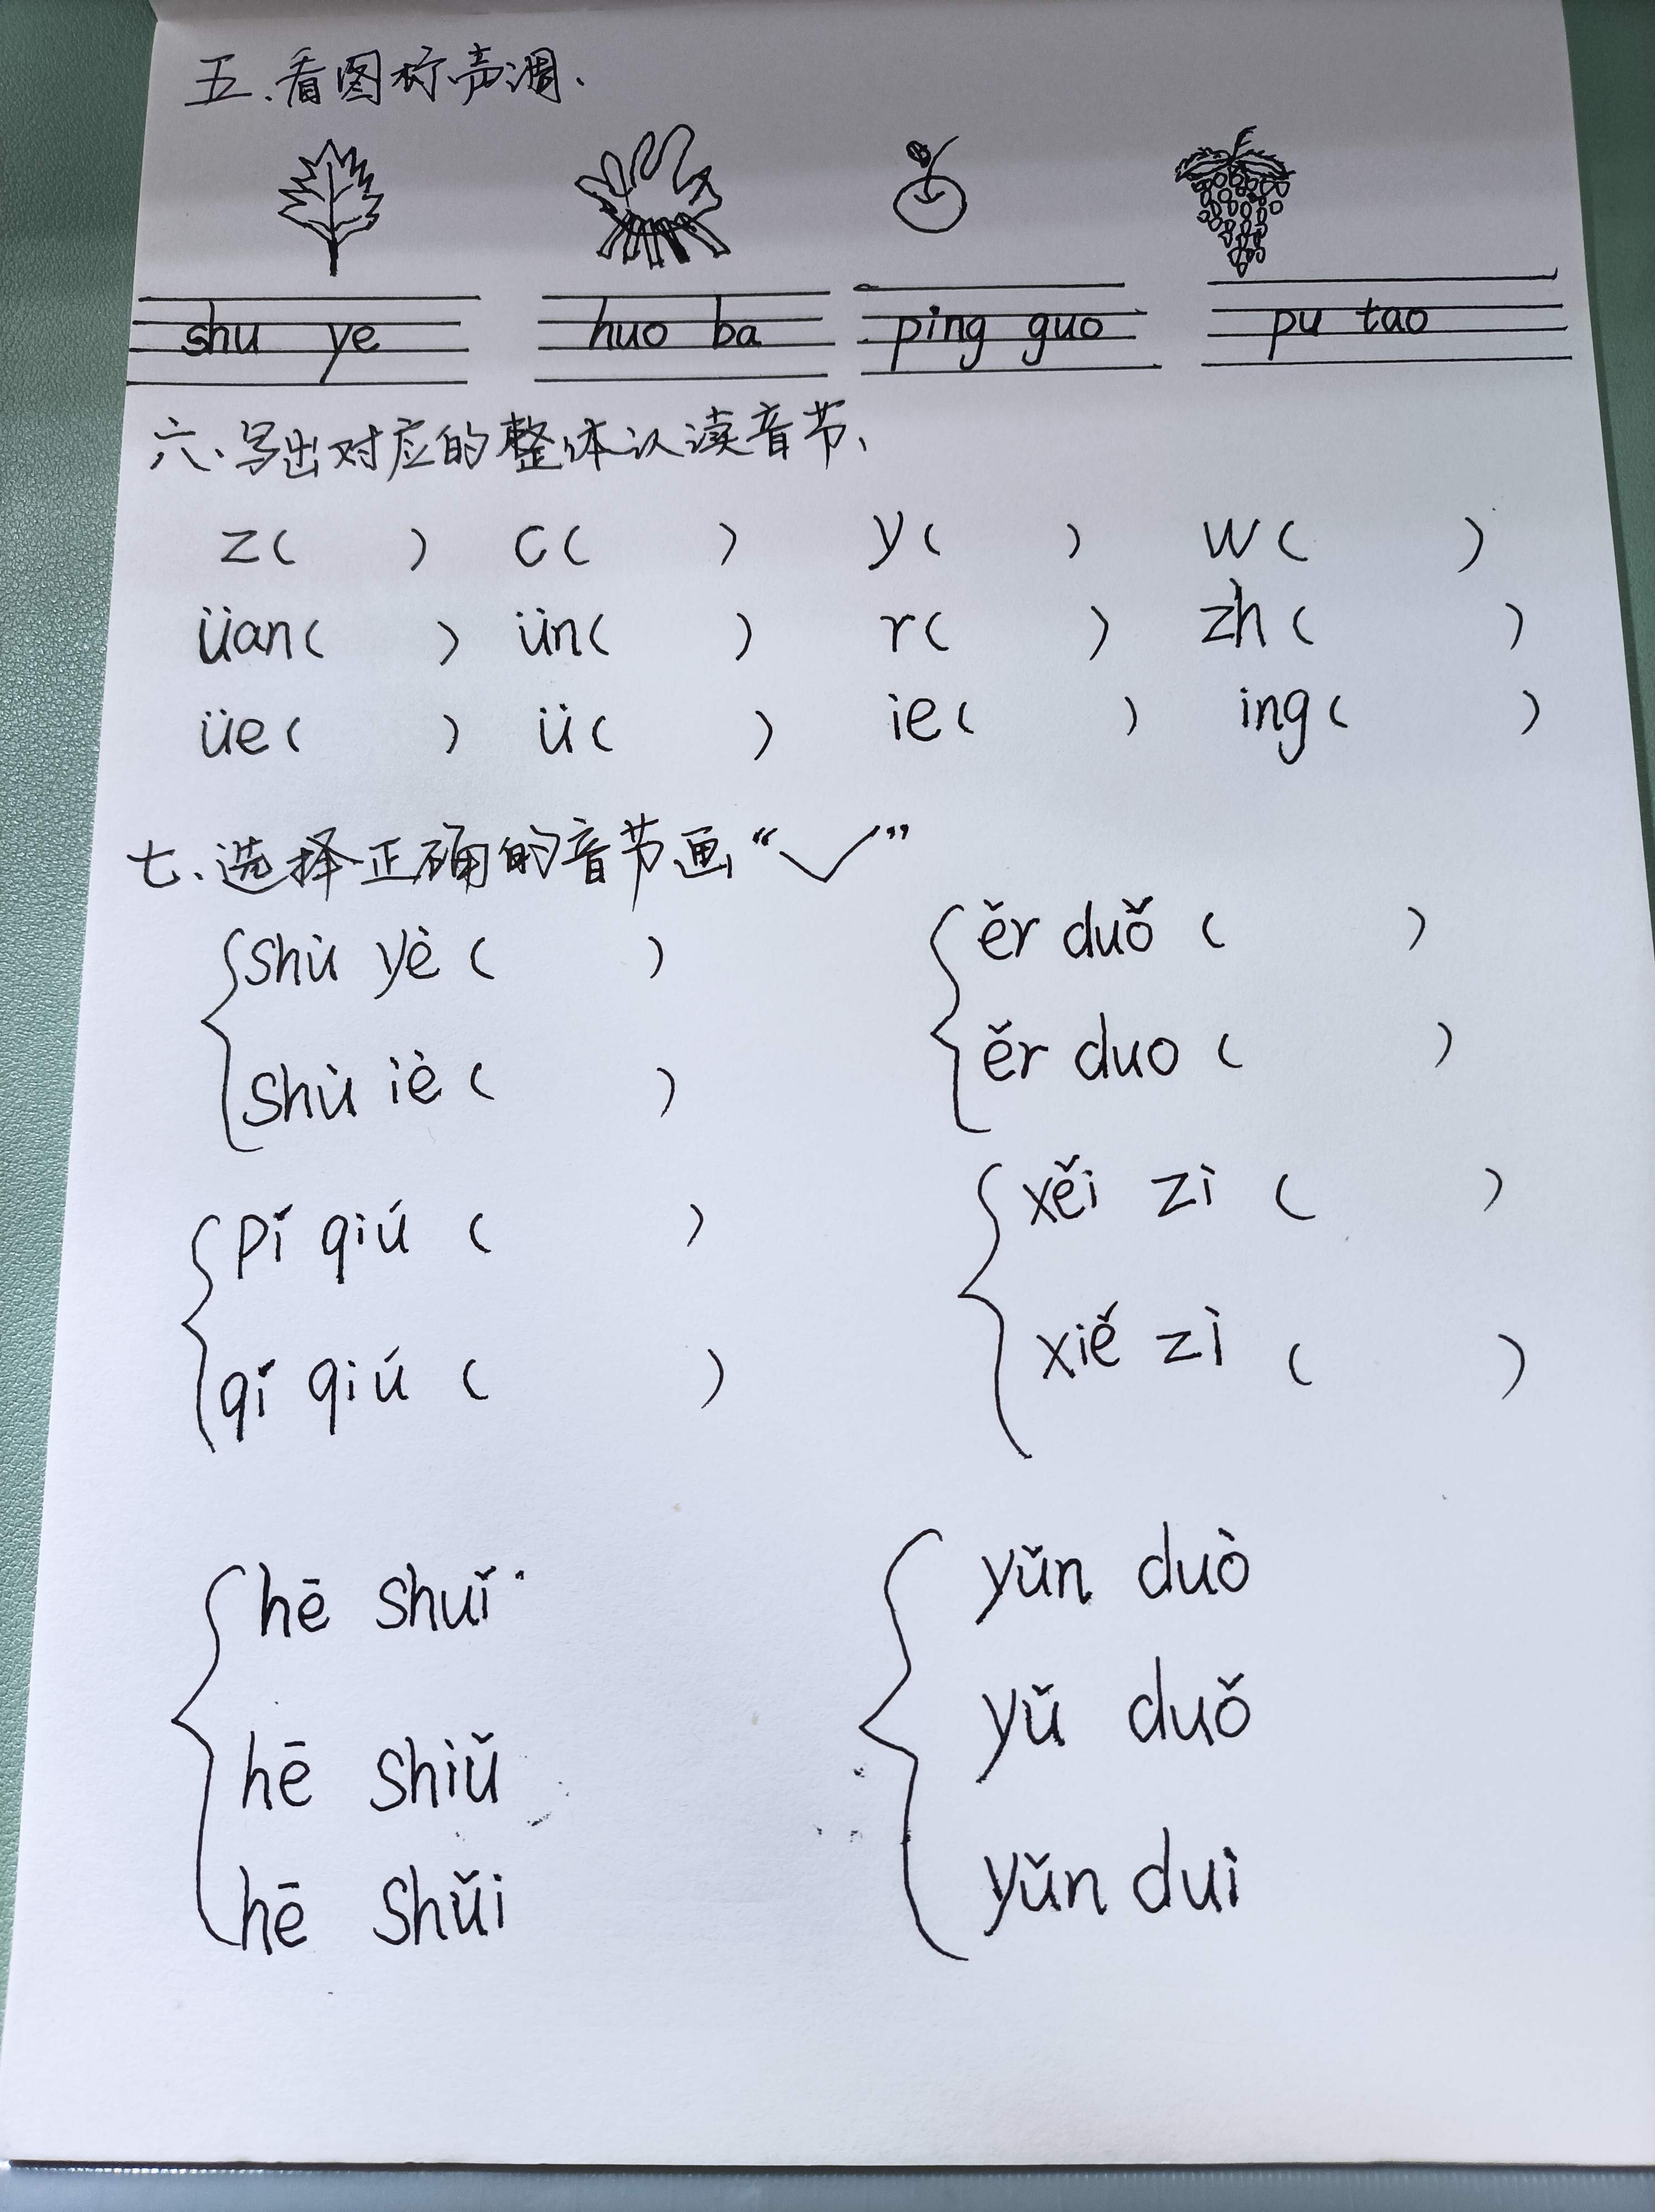 五、看图标声调、
shu ye huo ba ping guo pu tao
六、写出对应的整体认读音节、
z( ) c( ) y( ) w( )
üan( ) ün( ) r( ) zh( )
üe( ) ü( ) ie( ) ing( )
七、选择正确的音节画“✓”
shù yè ( ) ěr duǒ ( )
shù iè ( ) ěr duo ( )
pí qiú ( ) xěi zì ( )
qí qiú ( ) xiě zì ( )
hē shuǐ yǔn duò
hē shiǔ yǔ duǒ
hē shǔi yǔn duì